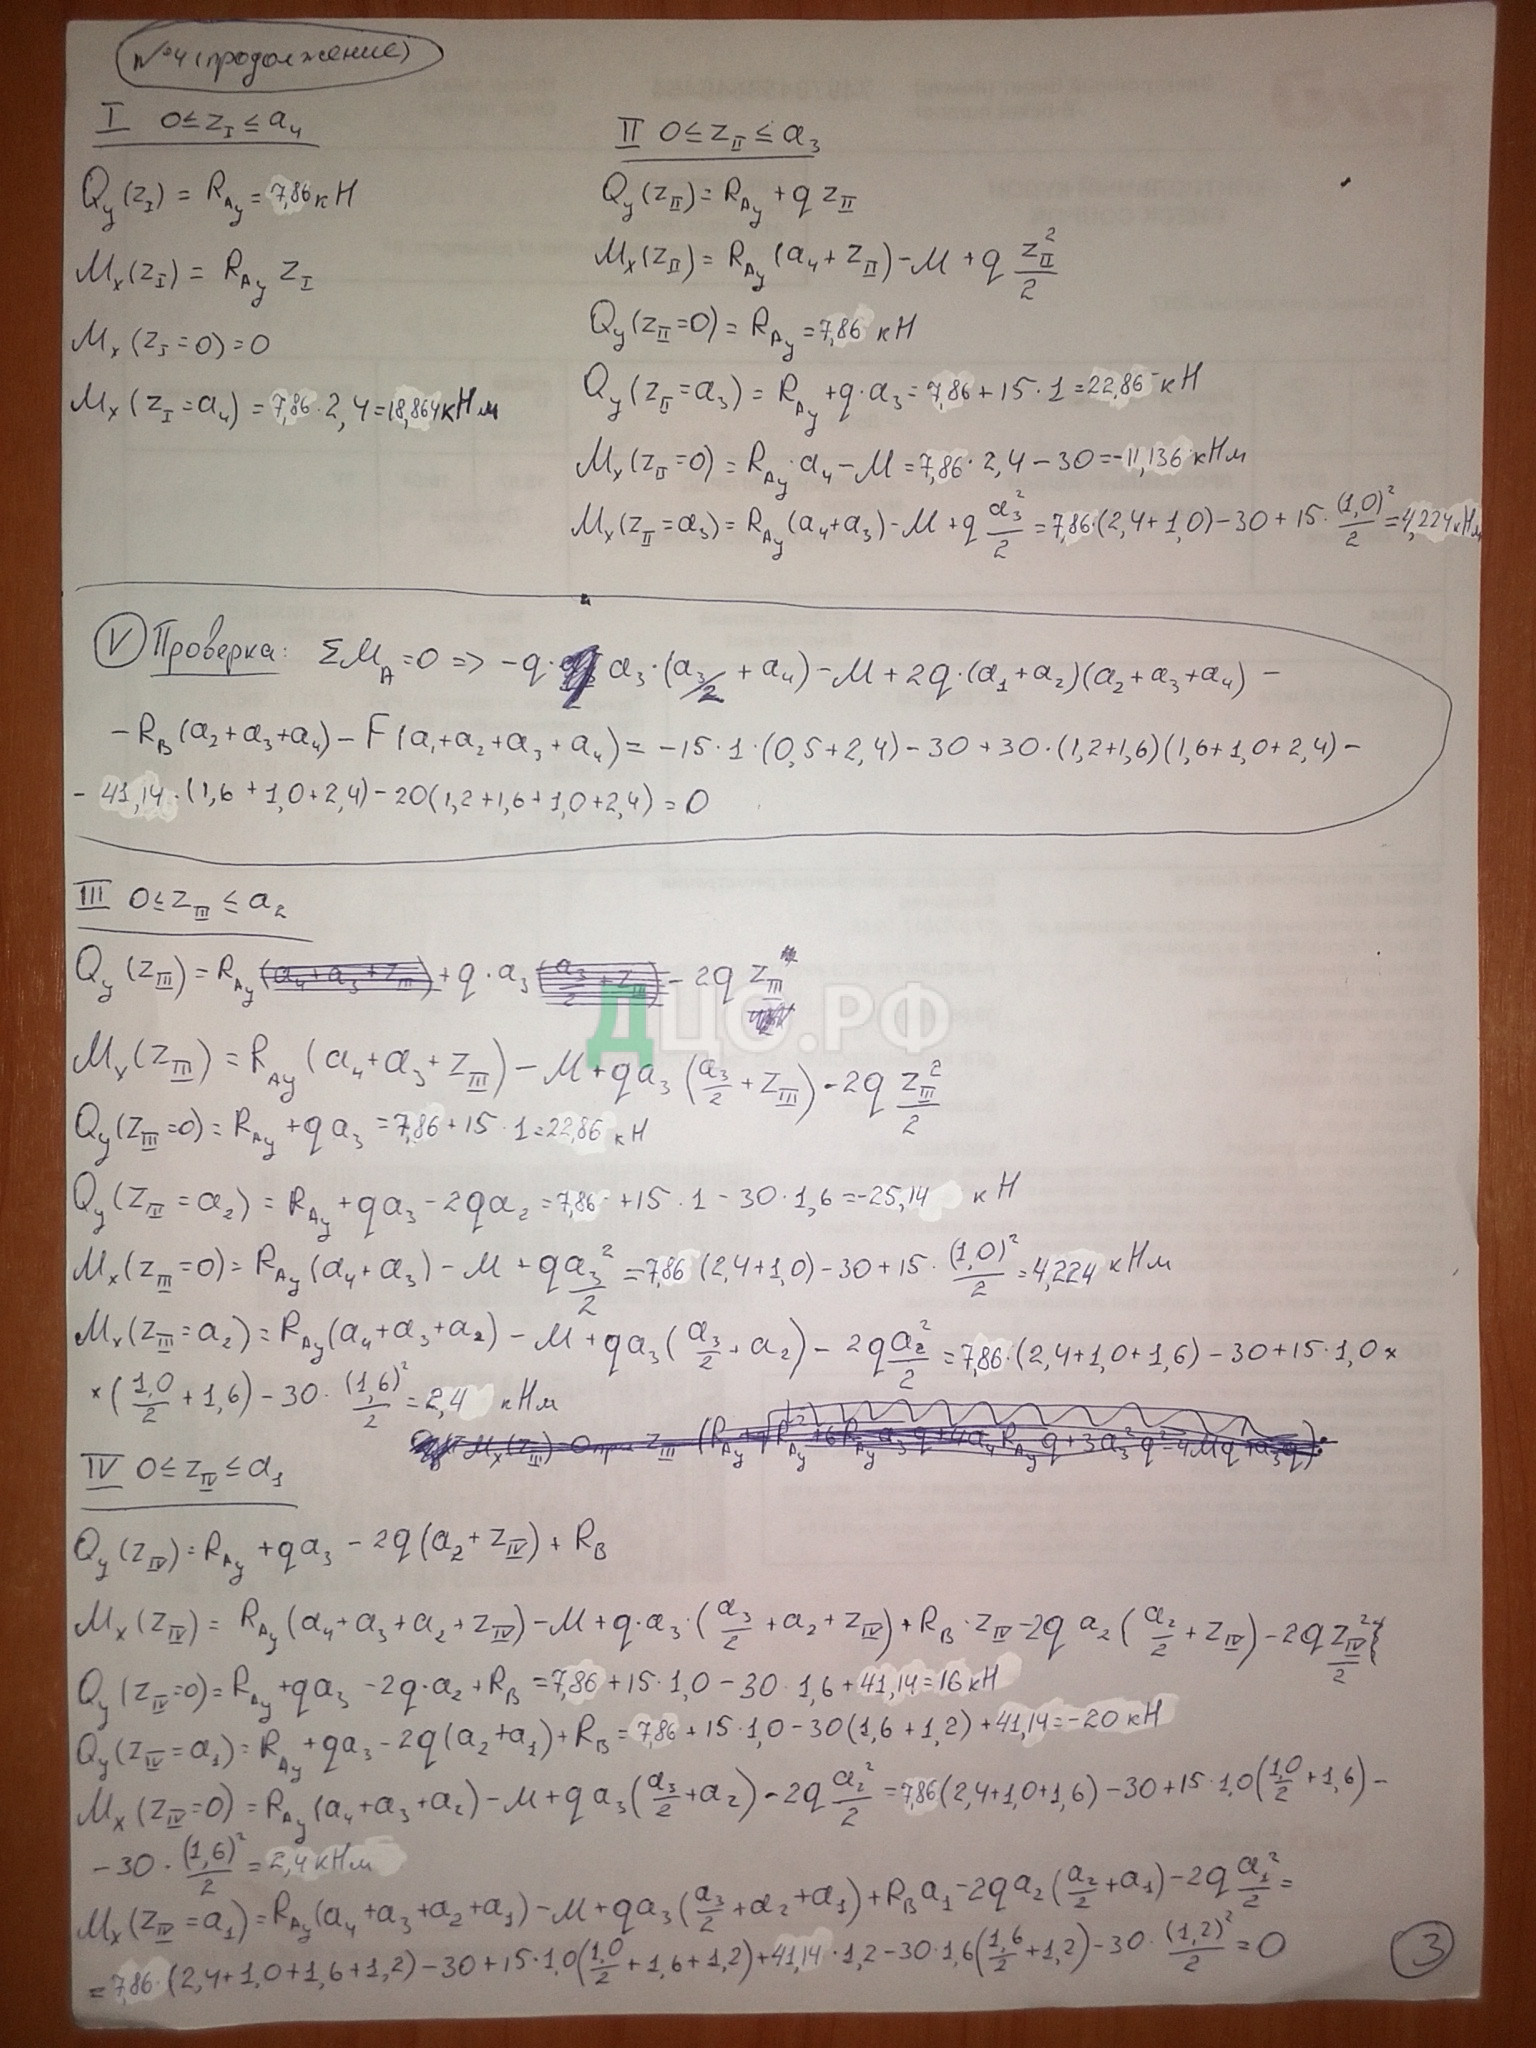 №4 (продолжение)
I 0≤z_I≤a₄
Q_y(z_I) = R_Ay = 7,86 кН
M_x(z_I) = R_Ay z_I
M_x(z_I=0)=0
M_x(z_I=a₄) = 7,86·2,4=18,864 кНм
II 0≤z_II≤a₃
Q_y(z_II) = R_Ay + q z_II
M_x(z_II) = R_Ay(a₄+z_II) - M + q z_II²/2
Q_y(z_II=0) = R_Ay = 7,86 кН
Q_y(z_II=a₃) = R_Ay + q·a₃ = 7,86+15·1=22,86 кН
M_x(z_II=0) = R_Ay·a₄ - M = 7,86·2,4-30=-11,136 кНм
M_x(z_II=a₃) = R_Ay(a₄+a₃) - M + q a₃²/2 = 7,86·(2,4+1,0)-30+15·(1,0)²/2=4,224 кНм
V Проверка: ΣM_A=0 => -q· a₃·(a₃/2 + a₄) - M + 2q·(a₁+a₂)(a₂+a₃+a₄) -
- R_B(a₂+a₃+a₄) - F(a₁+a₂+a₃+a₄) = -15·1·(0,5+2,4)-30+30·(1,2+1,6)(1,6+1,0+2,4)-
- 41,14·(1,6+1,0+2,4)-20(1,2+1,6+1,0+2,4)=0
III 0≤z_III≤a₂
Q_y(z_III) = R_Ay (a₄+a₃+z_III) + q·a₃ (a₃/2+z_III) - 2q z_III
M_x(z_III) = R_Ay(a₄+a₃+z_III) - M + qa₃(a₃/2+z_III) - 2q z_III²/2
Q_y(z_III=0) = R_Ay + qa₃ = 7,86+15·1=22,86 кН
Q_y(z_II=a₂) = R_Ay + qa₃ - 2qa₂ = 7,86+15·1-30·1,6=-25,14 кН
M_x(z_III=0) = R_Ay(a₄+a₃) - M + qa₃²/2 = 7,86(2,4+1,0)-30+15·(1,0)²/2=4,224 кНм
M_x(z_III=a₂) = R_Ay(a₄+a₃+a₂) - M + qa₃(a₃/2+a₂) - 2qa₂²/2 = 7,86·(2,4+1,0+1,6)-30+15·1,0×
×(1,0/2+1,6)-30·(1,6)²/2=2,4 кНм
IV 0≤z_IV≤a₁
Q_y(z_IV) = R_Ay + qa₃ - 2q(a₂+z_IV) + R_B
M_x(z_IV) = R_Ay(a₄+a₃+a₂+z_IV) - M + q·a₃·(a₃/2+a₂+z_IV) + R_B·z_IV - 2q a₂(a₂/2+z_IV) - 2q z_IV²/2
Q_y(z_IV=0) = R_Ay + qa₃ - 2q·a₂ + R_B = 7,86+15·1,0-30·1,6+41,14=16 кН
Q_y(z_IV=a₁) = R_Ay + qa₃ - 2q(a₂+a₁) + R_B = 7,86+15·1,0-30(1,6+1,2)+41,14=-20 кН
M_x(z_IV=0) = R_Ay(a₄+a₃+a₂) - M + qa₃(a₃/2+a₂) - 2q a₂²/2 = 7,86(2,4+1,0+1,6)-30+15·1,0(1,0/2+1,6)-
-30·(1,6)²/2=2,4 кНм
M_x(z_IV=a₁) = R_Ay(a₄+a₃+a₂+a₁) - M + qa₃(a₃/2+a₂+a₁) + R_B a₁ - 2qa₂(a₂/2+a₁) - 2q a₁²/2 =
= 7,86·(2,4+1,0+1,6+1,2)-30+15·1,0(1,0/2+1,6+1,2)+41,14·1,2-30·1,6(1,6/2+1,2)-30·(1,2)²/2=0
3
ДЦО.РФ